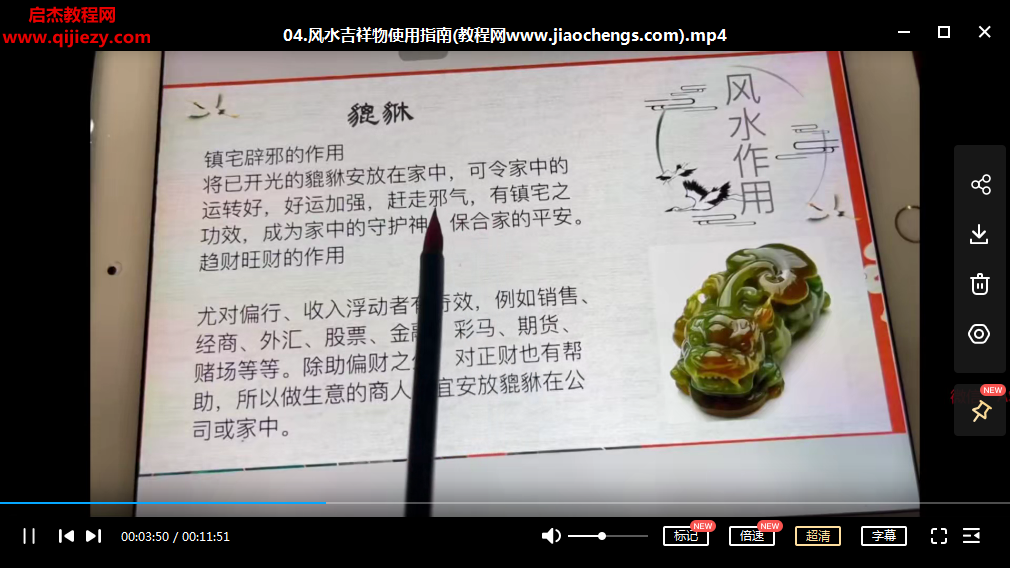 启杰教程网
www.qijiezy.com
04.风水吉祥物使用指南(教程网www.jiaochengs.com).mp4
貔貅
镇宅辟邪的作用
将已开光的貔貅安放在家中，可令家中的
运转好，好运加强，赶走邪气，有镇宅之
功效，成为家中的守护神 保合家的平安。
趋财旺财的作用
尤对偏行、收入浮动者有奇效，例如销售、
经商、外汇、股票、金融 彩马、期货、
赌场等等。除助偏财之 对正财也有帮
助，所以做生意的商人 宜安放貔貅在公
司或家中。
风水作用
NEW
00:03:50 / 00:11:51
标记
NEW
倍速
NEW
超清
字幕